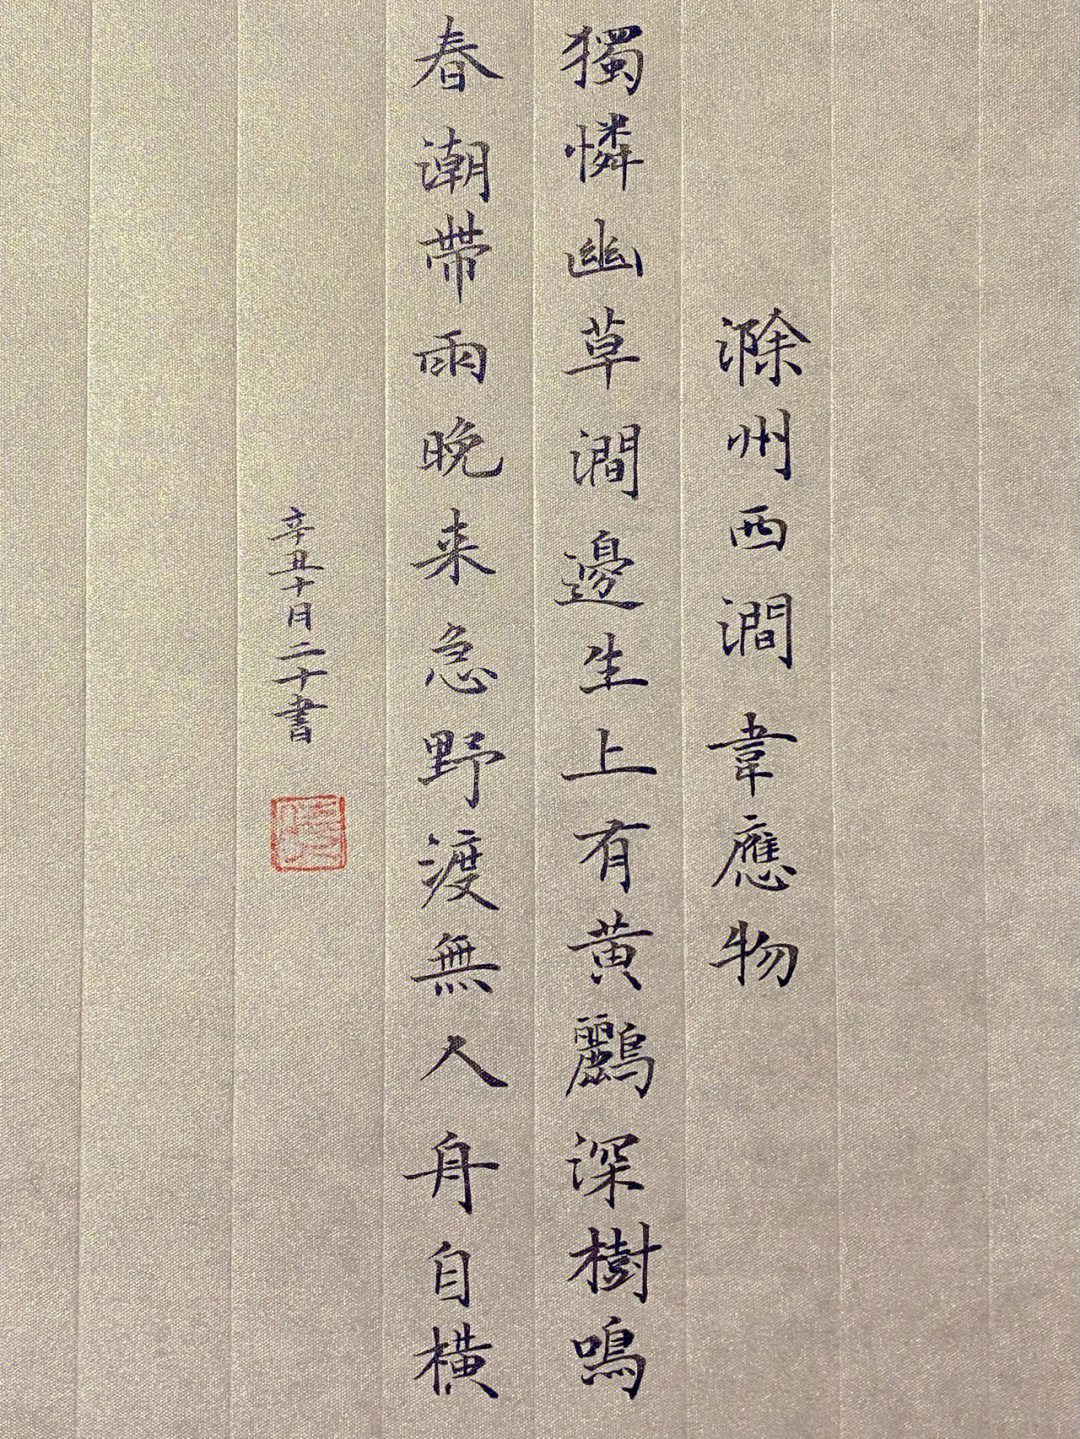 滁州西澗 韋應物
獨憐幽草澗邊生上有黄鸝深樹鳴
春潮帶雨晚来急野渡無人舟自橫
辛丑十月二十書